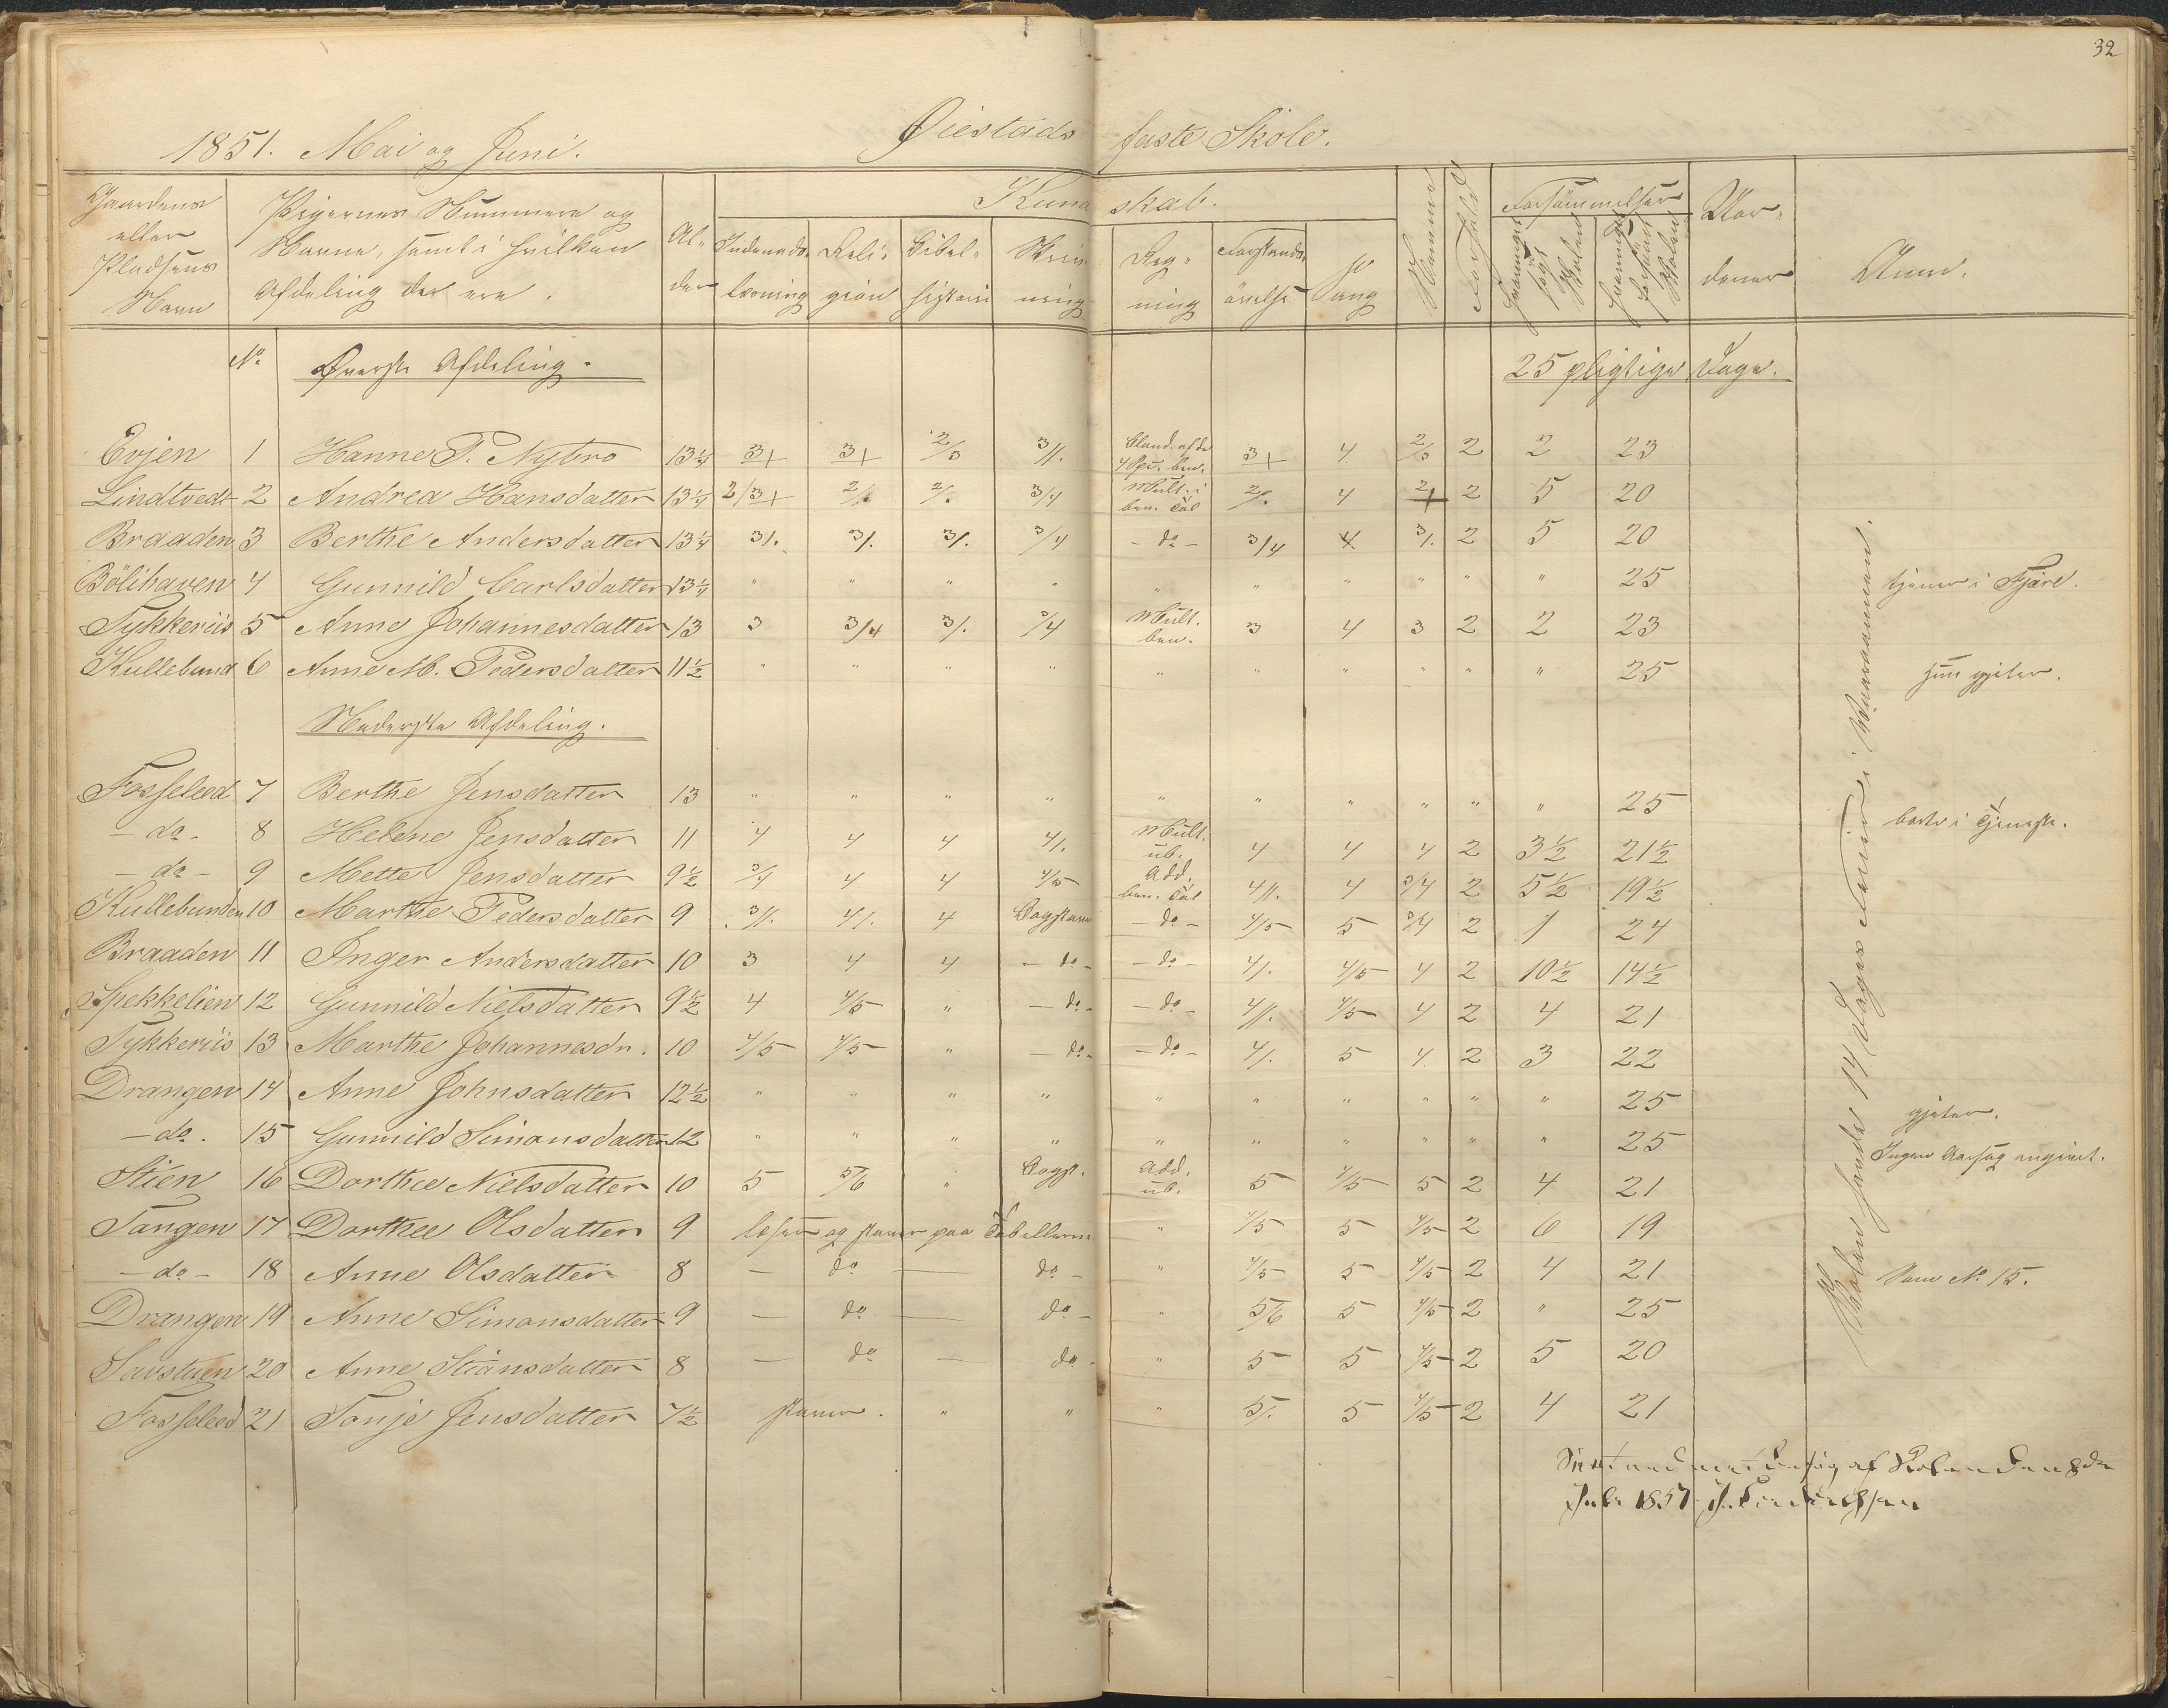 32
1851. Mai og Juni. Øiestads faste Skole.
Gaardens eller Pladsens Navn
Pigernes Nummere og Navne, samt i hvilken Afdeling de ere.
Alder
Kundskab.
Indenadslæsning
Religion
Bibelhistorie
Skrivning
Regning
Forstandsøvelse
Sang
Nemme
Forhold
Forsømmelser
Ann.
No Øverste Afdeling. 25 pligtige Dage.
Evjen 1 Hanne P. Nybro 13 1/4 3+ 3+ 2/3 3//. bland. afd. 4 Spe. ben. 3+ 4 2/3 2 2 23
Lindtvedt 2 Andrea Hansdatter 13 1/4 2/3+ 2/. 2/. 3/4 Mult. i ben. Tal 2/. 4 2+ 2 5 20
Braaden 3 Berthe Andersdatter 13 1/4 3/. 3/. 3/. 3/4 - do - 3/4 4 3/. 2 5 20
Bölihaven 4 Gunnild Carlsdatter 13 1/4 " " " " " " " " " " 25 tjener i Fjære.
Tykkeriis 5 Anne Johannesdatter 13 3 3/4 3/. 3/4 Mult. ben. 3 4 3 2 2 23
Kullebund 6 Anne M. Pedersdatter 11 1/2 " " " " " " " " " " 25 hun gjeter.
Nederste Afdeling.
Fosseleed 7 Berthe Jensdatter 13 " " " " " " " " " " 25 borte i Tjeneste.
- do - 8 Helene Jensdatter 11 4 4 4 4/. Mult. ub. 4 4 4 2 3 1/2 21 1/2
- do - 9 Mette Jensdatter 9 1/2 3/4 4 4 4/5 Add. ben. Tal 4//. 4 3/4 2 5 1/2 19 1/2
Kullebunden 10 Marthe Pedersdatter 9 3//. 4/. 4 Bogstaver - do - 4/5 5 3/4 2 1 24
Braaden 11 Inger Andersdatter 10 3 4 4 - do - - do - 4/. 4/5 4 2 10 1/2 14 1/2
Spekkelien 12 Gunnild Nielsdatter 9 1/2 4 4/5 " - do - - do - 4//. 4/5 4 2 4 21
Tykkeriis 13 Marthe Johannesdr. 10 4/5 4/5 " - do - - do - 4/. 5 4 2 3 22
Drangen 14 Anne Johnsdatter 12 1/2 " " " " " " " " " " 25 gjeter.
- do. 15 Gunnild Simonsdatter 12 " " " " " " " " " " 25 Ingen Aarsag angivet.
Stien 16 Dorthee Nielsdatter 10 5 5/6 " Bogst. Add. ub. 5 4/5 5 2 4 21
Tangen 17 Dorthee Olsdatter 9 læser og staver paa Tabellerne " 4/5 5 4/5 2 6 19
- do - 18 Anne Olsdatter 8 — do — do - " 4/5 5 4/5 2 4 21
Drangen 19 Anne Simonsdatter 9 — do — do - " 5/6 5 4/5 2 " 25 Som No 15.
Savstuen 20 Anne Stiansdatter 8 — do — do - " 5 5 4/5 2 5 20
Fosseleed 21 Tonje Jensdatter 7 1/2 staver. " " " 5/. 5 4/5 2 4 21
Skolen havde 14 Dages Ferie i
af Skolen den 8de
Juli 1851